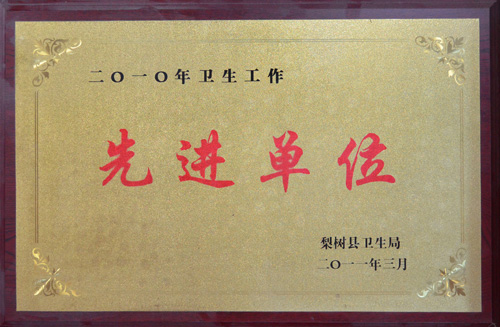 二〇一〇年卫生工作
先进单位
梨树县卫生局
二〇一一年三月